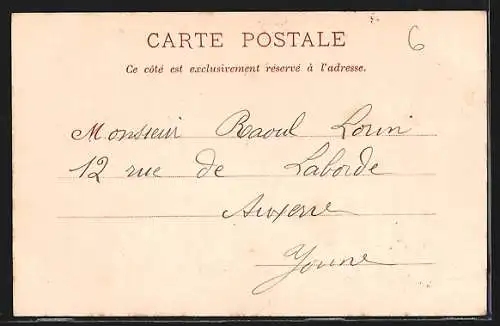 CARTE POSTALE
6
Ce côté est exclusivement réservé à l'adresse.
Monsieur Raoul Lorin
12 rue de Laborde
Auxerre
Yonne